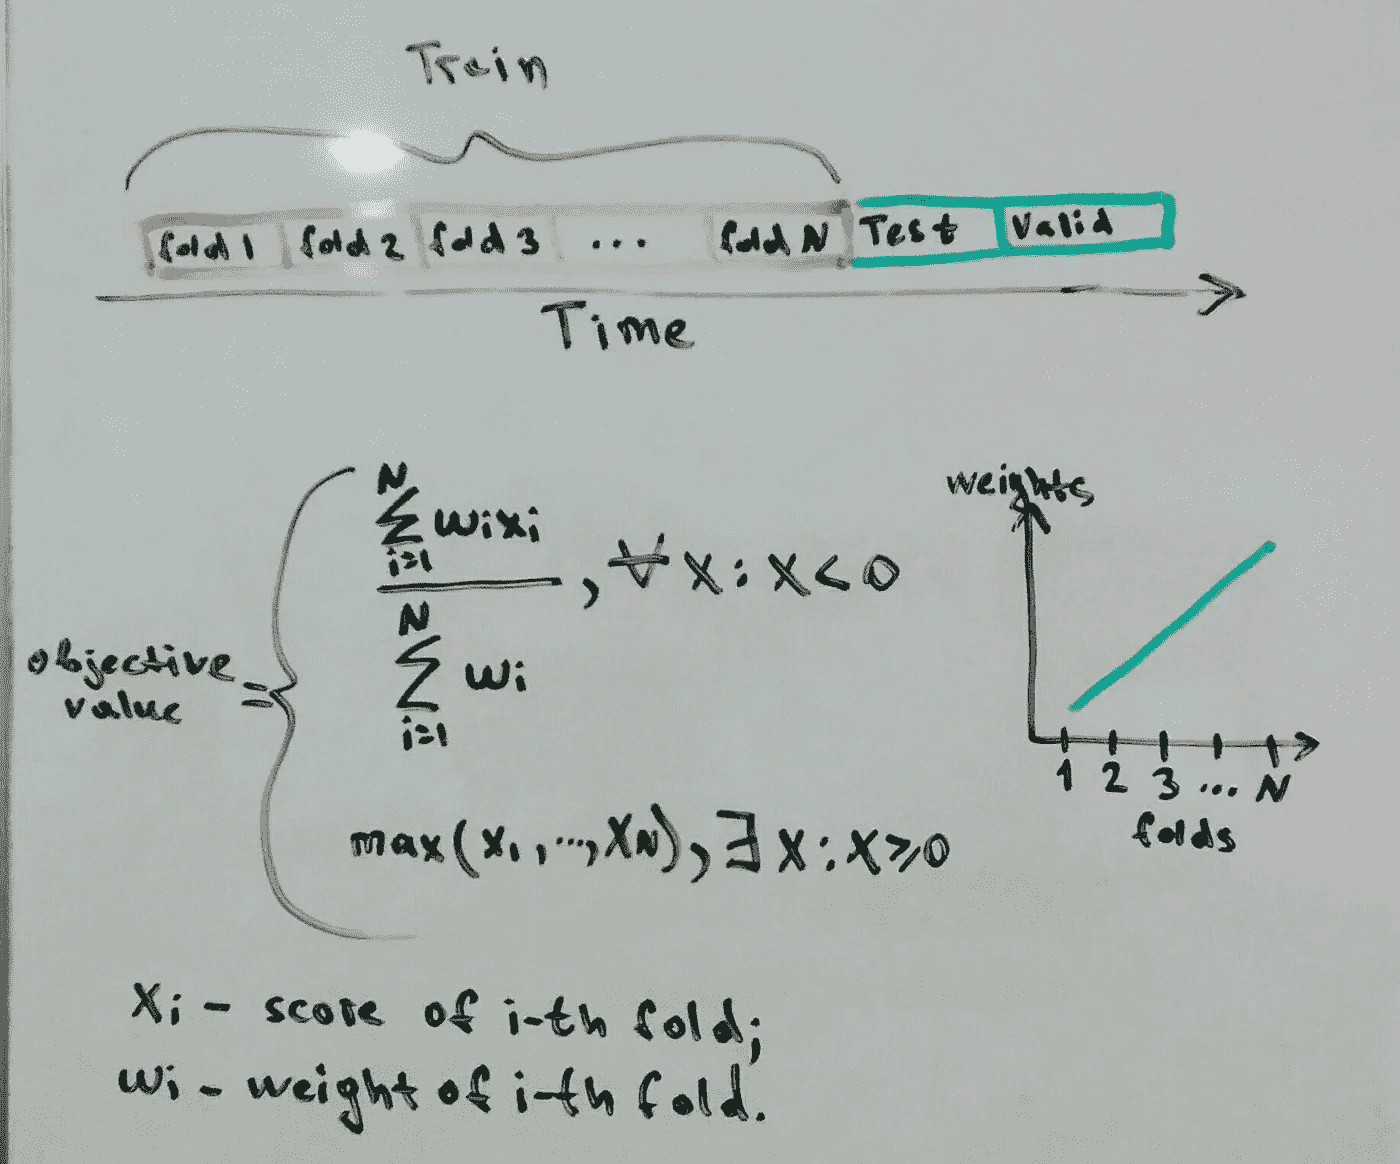 Train
fold 1 fold 2 fold 3 ... fold N Test Valid
Time
objective
value
=
N
∑ wixi
i=1
, ∀ x : x < 0
N
∑ wi
i=1
max(x1, ..., xN), ∃ x : x ⩾ 0
weights
1 2 3 ... N
folds
xi - score of i-th fold;
wi - weight of i-th fold.